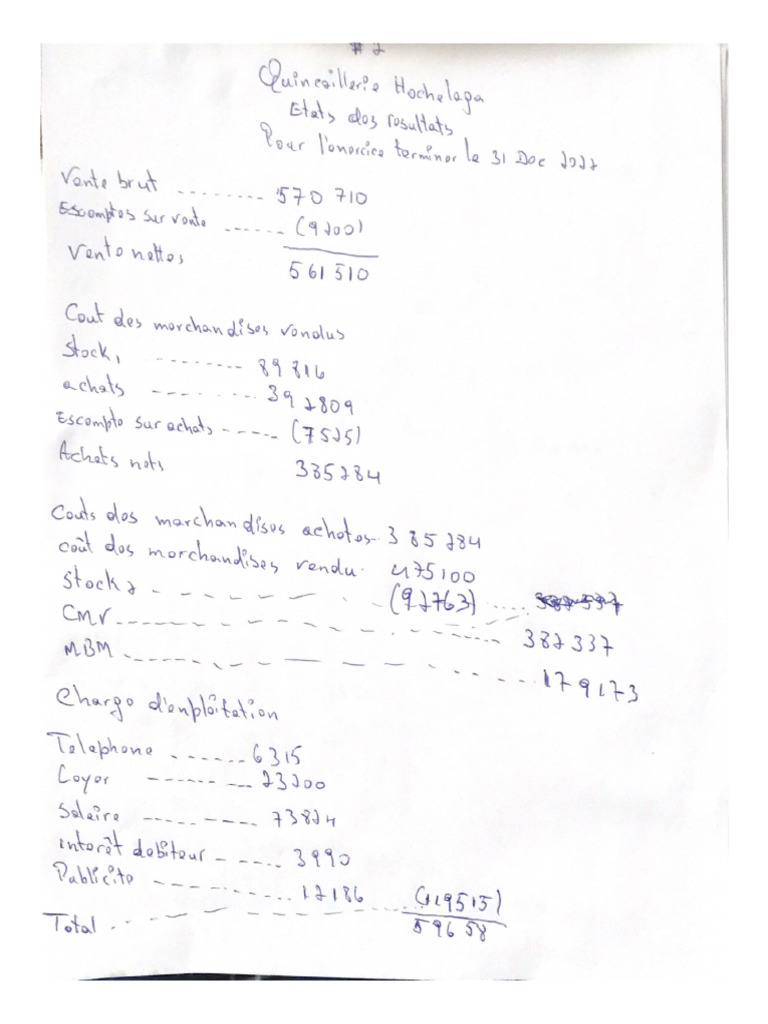 # 2
Quincaillerie Hochelaga
Etats des resultats
Pour l'exercice terminer le 31 Dec 2022
Vente brut ........ 570 710
Escomptes sur vente ...... (9200)
Vente nettes 561 510
Cout des marchandises vendus
Stock 1 ........ 89 816
achats ........ 392809
Escompte sur achats ----- (7525)
Achats nets 385284
Couts des marchandises achetes.. 385284
coût des marchandises vendu. 475100
Stock 2 ........ (92763) ....
CMV ........ 382337
MBM ........ 179173
Charge d'exploitation
Telephone ...... 6315
Loyer ------ 23200
Salaire ------ 73824
interêt debiteur - .... 3990
Publicite ------ 12186 (119515)
Total ...... 59658